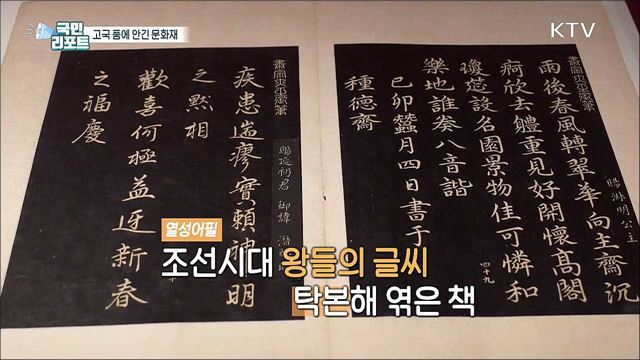 국민
리포트
고국 품에 안긴 문화재
KTV
雨後春風轉翠華向主齋沉
痾欣去體重見好開懷高閣
瓊筵設名園景物佳可憐和
樂地誰奏八音諧
己卯蠶月四日書于
種德齋
四十九
賜延礽君 御諱
疾患遄瘳實賴神明
之黙相
歡喜何極益迓新春
之福慶
열성어필
조선시대 왕들의 글씨
탁본해 엮은 책